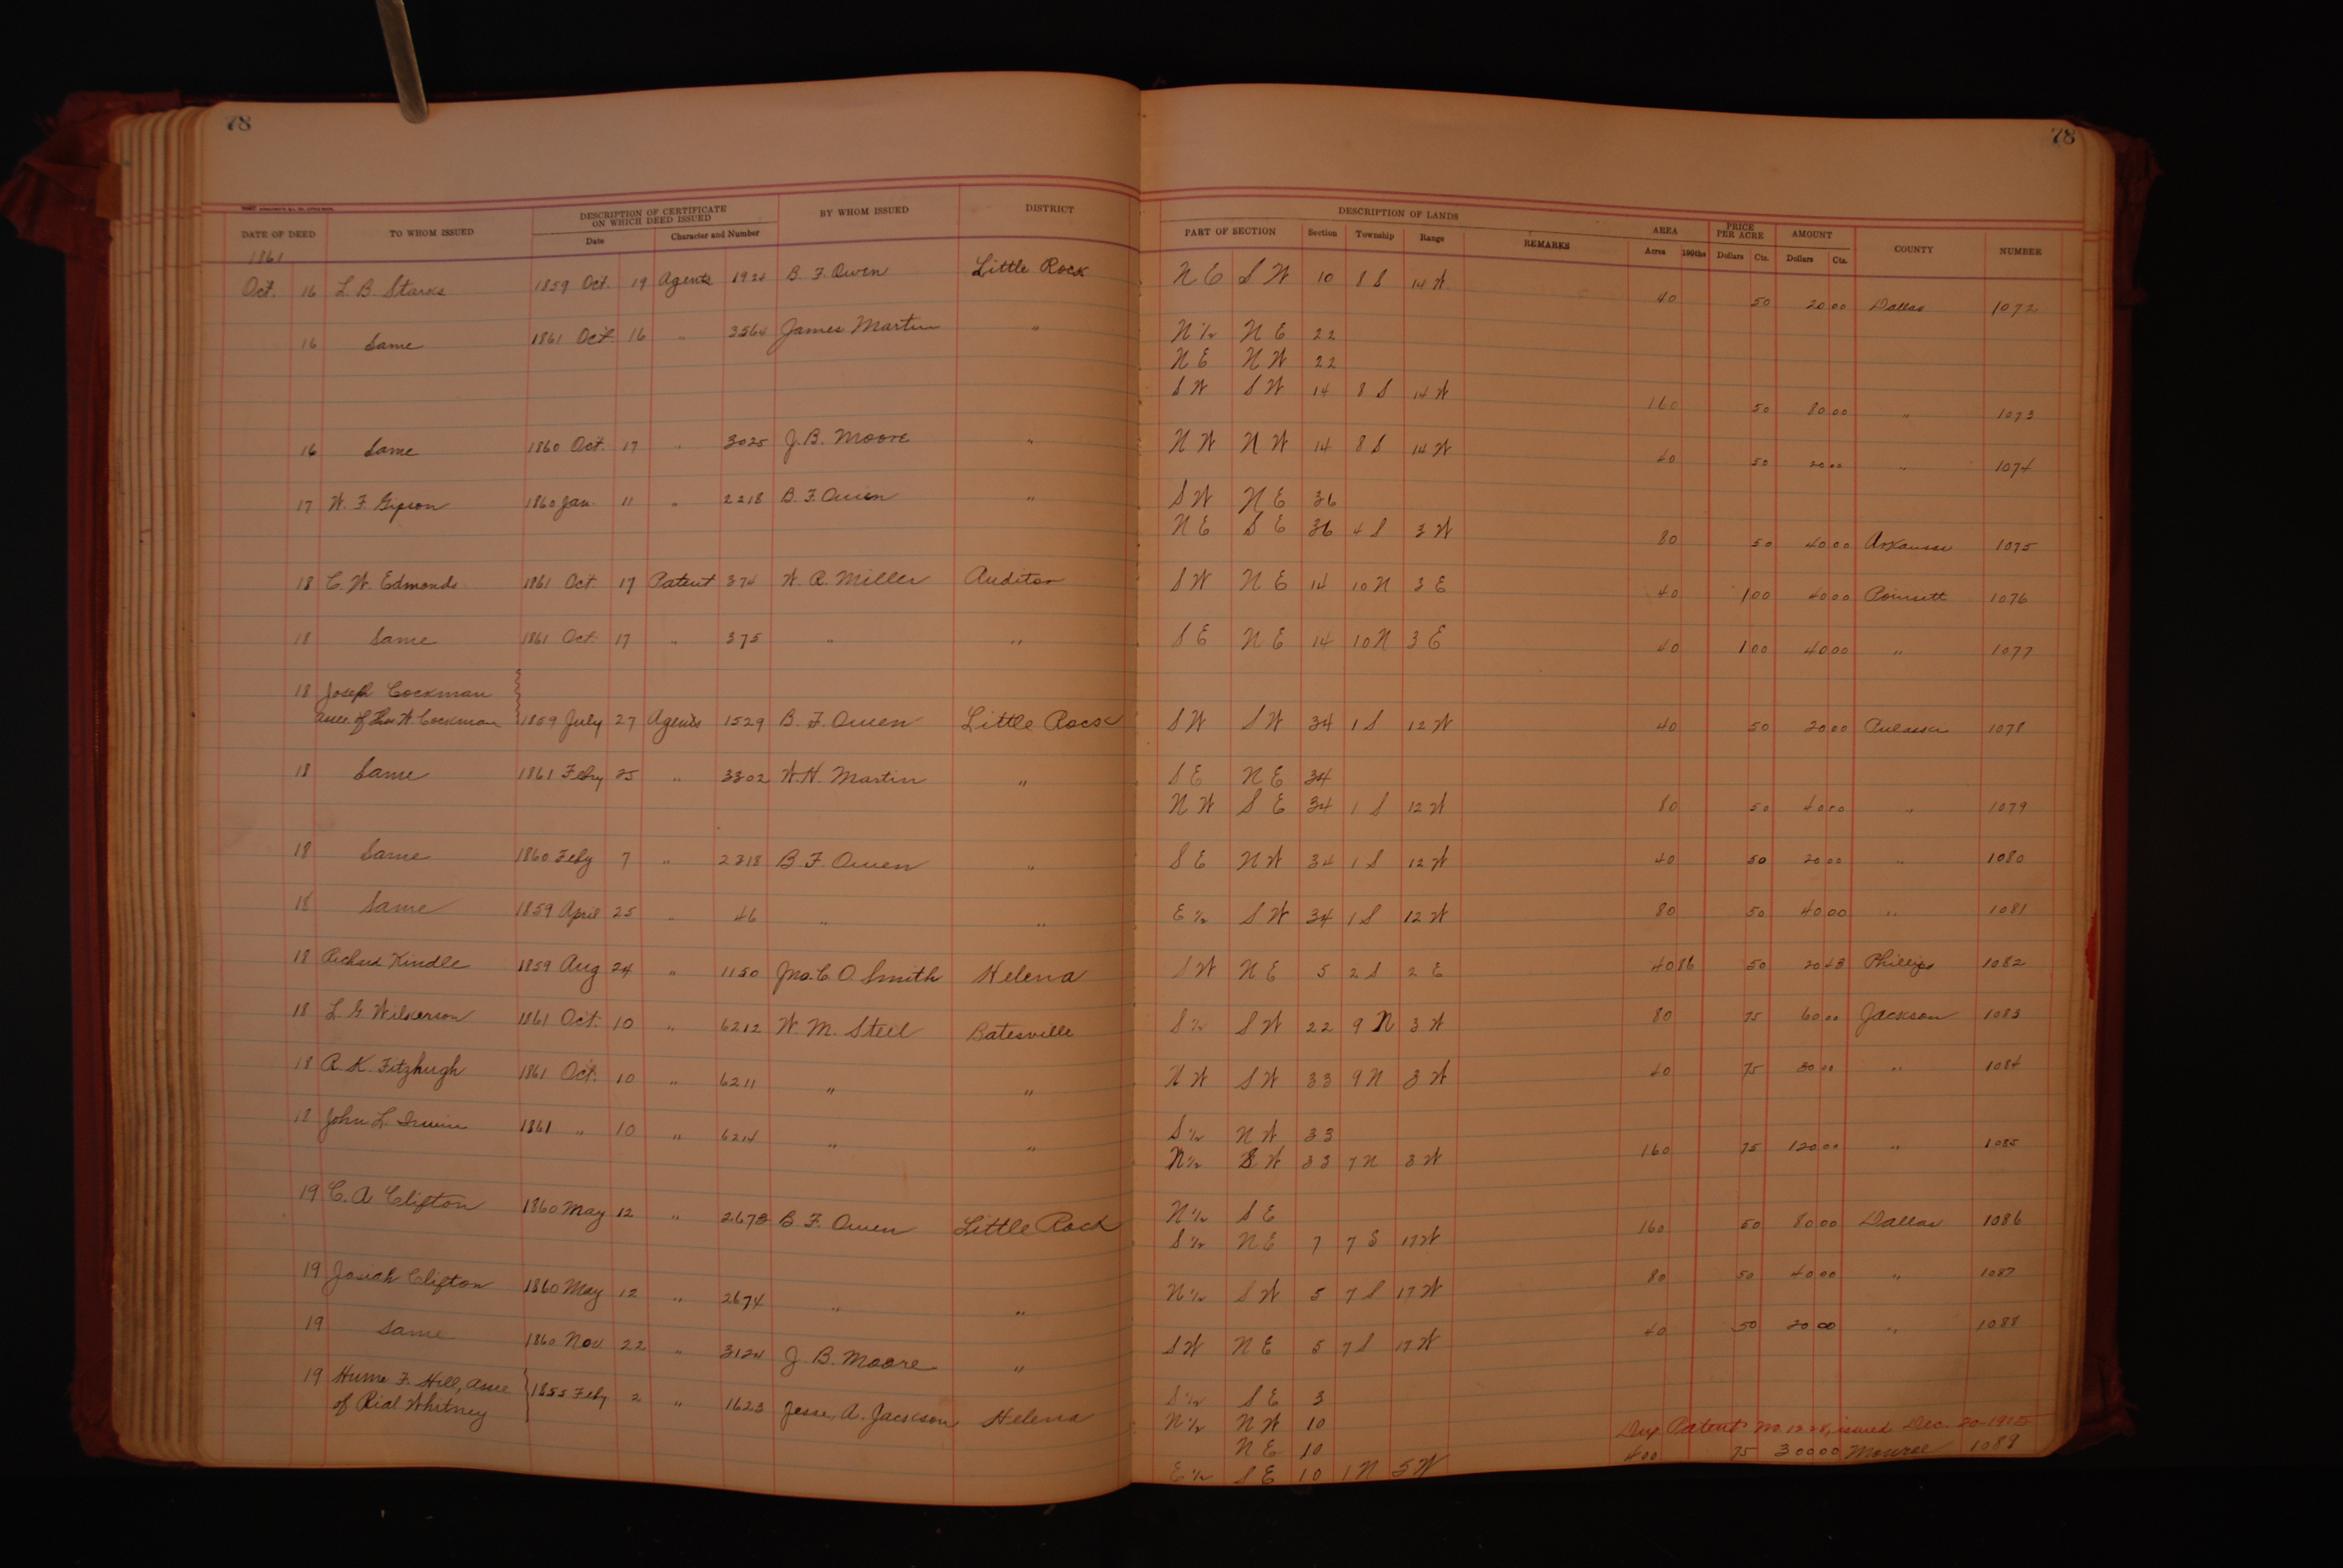 78 78
DATE OF DEED TO WHOM ISSUED DESCRIPTION OF CERTIFICATE ON WHICH DEED ISSUED Date Character and Number BY WHOM ISSUED DISTRICT DESCRIPTION OF LANDS PART OF SECTION Section Township Range REMARKS AREA Acres 100ths PRICE PER ACRE Dollars Cts. AMOUNT Dollars Cts. COUNTY NUMBER
1861
Oct. 16 L. B. Starks 1859 Oct. 19 Agents 1924 B. F. Owen Little Rock N E S W 10 8 S 14 W 40 50 20 00 Dallas 1072
16 Same 1861 Oct. 16 " 3564 James Martin " N ½ N E 22
N E N W 22
S W S W 14 8 S 14 W 160 50 80 00 " 1073
16 Same 1860 Oct. 17 " 3025 J. B. Moore " N W N W 14 8 S 14 W 40 50 20 00 " 1074
17 W. F. Gipson 1860 Jan. 11 " 2218 B. F. Owen " S W N E 36
N E S E 36 4 S 3 W 80 50 40 00 Arkansas 1075
18 C. W. Edmonds 1861 Oct 17 Patent 374 W. R. Miller Auditor S W N E 14 10 N 3 E 40 1 00 40 00 Poinsett 1076
18 Same 1861 Oct. 17 " 375 " " S E N E 14 10 N 3 E 40 1 00 40 00 " 1077
18 Joseph Cockman
assee of W. Cockman 1859 July 27 Agents 1529 B. F. Owen Little Rock S W S W 34 1 S 12 W 40 50 20 00 Pulaski 1078
18 Same 1861 Feby 25 " 3302 W. H. Martin " S E N E 34
N W S E 34 1 S 12 W 80 50 40 00 " 1079
18 Same 1860 Feby 7 " 2318 B. F. Owen " S E N W 34 1 S 12 W 40 50 20 00 " 1080
18 Same 1859 April 25 " 46 " " E ½ S W 34 1 S 12 W 80 50 40 00 " 1081
18 Richard Kindle 1859 Aug 24 " 1150 Jno. C. O. Smith Helena S W N E 5 2 S 2 E 40 86 50 20 43 Phillips 1082
18 L. G. Wilkerson 1861 Oct. 10 " 6212 W. M. Steel Batesville S ½ S W 22 9 N 3 W 80 75 60 00 Jackson 1083
18 R. K. Fitzhugh 1861 Oct. 10 " 6211 " " N W S W 33 9 N 3 W 40 75 30 00 " 1084
18 John L. Irwin 1861 " 10 " 6214 " " S ½ N W 33
N ½ S W 33 7 N 3 W 160 75 120 00 " 1085
19 C. A. Clifton 1860 May 12 " 2673 B. F. Owen Little Rock N ½ S E
S ½ N E 7 7 S 17 W 160 50 80 00 Dallas 1086
19 Josiah Clifton 1860 May 12 " 2674 " " N ½ S W 5 7 S 17 W 80 50 40 00 " 1087
19 Same 1860 Nov 22 " 3124 J. B. Moore " S W N E 5 7 S 17 W 40 50 20 00 " 1088
19 Hume F. Hill, assee 1855 Feby 2 " 1623 Jesse A. Jackson Helena S ½ S E 3
of Rial Whitney N ½ N W 10 Dup Patent No. issued Dec. 20
N E 10 400 75 300 00 Monroe 1089
E ½ S E 10 1 N 5 W